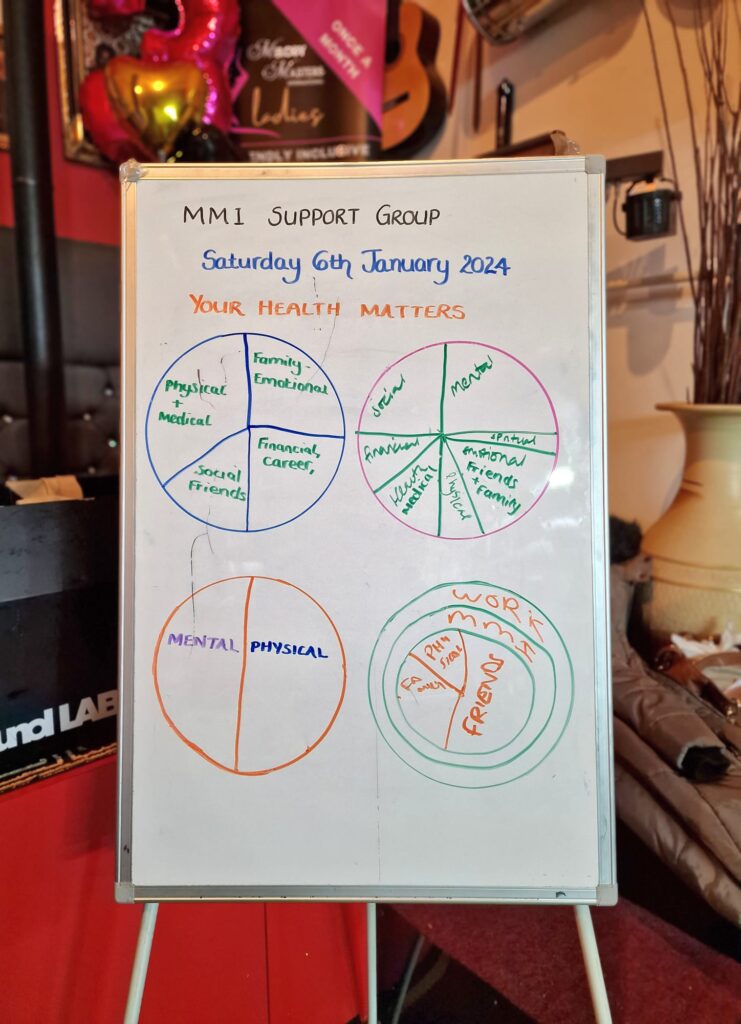 ONCE A
MONTH
MASTERS
Ladies
NDLY INCLUSIVE
MMI SUPPORT GROUP
Saturday 6th January 2024
YOUR HEALTH MATTERS
Physical
+
Medical
Family-
Emotional
Financial,
Career,
Social
Friends
Social
Mental
Financial
Health
Medical
Physical
Emotional
Friends
+ Family
MENTAL
PHYSICAL
WORK
PHYSICAL
FAMILY
FRIENDS
und LAB